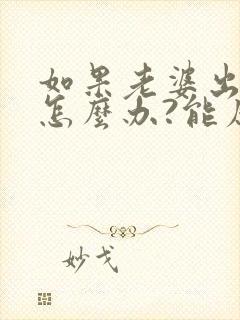 如果老婆出
怎麼办?能
妙戈